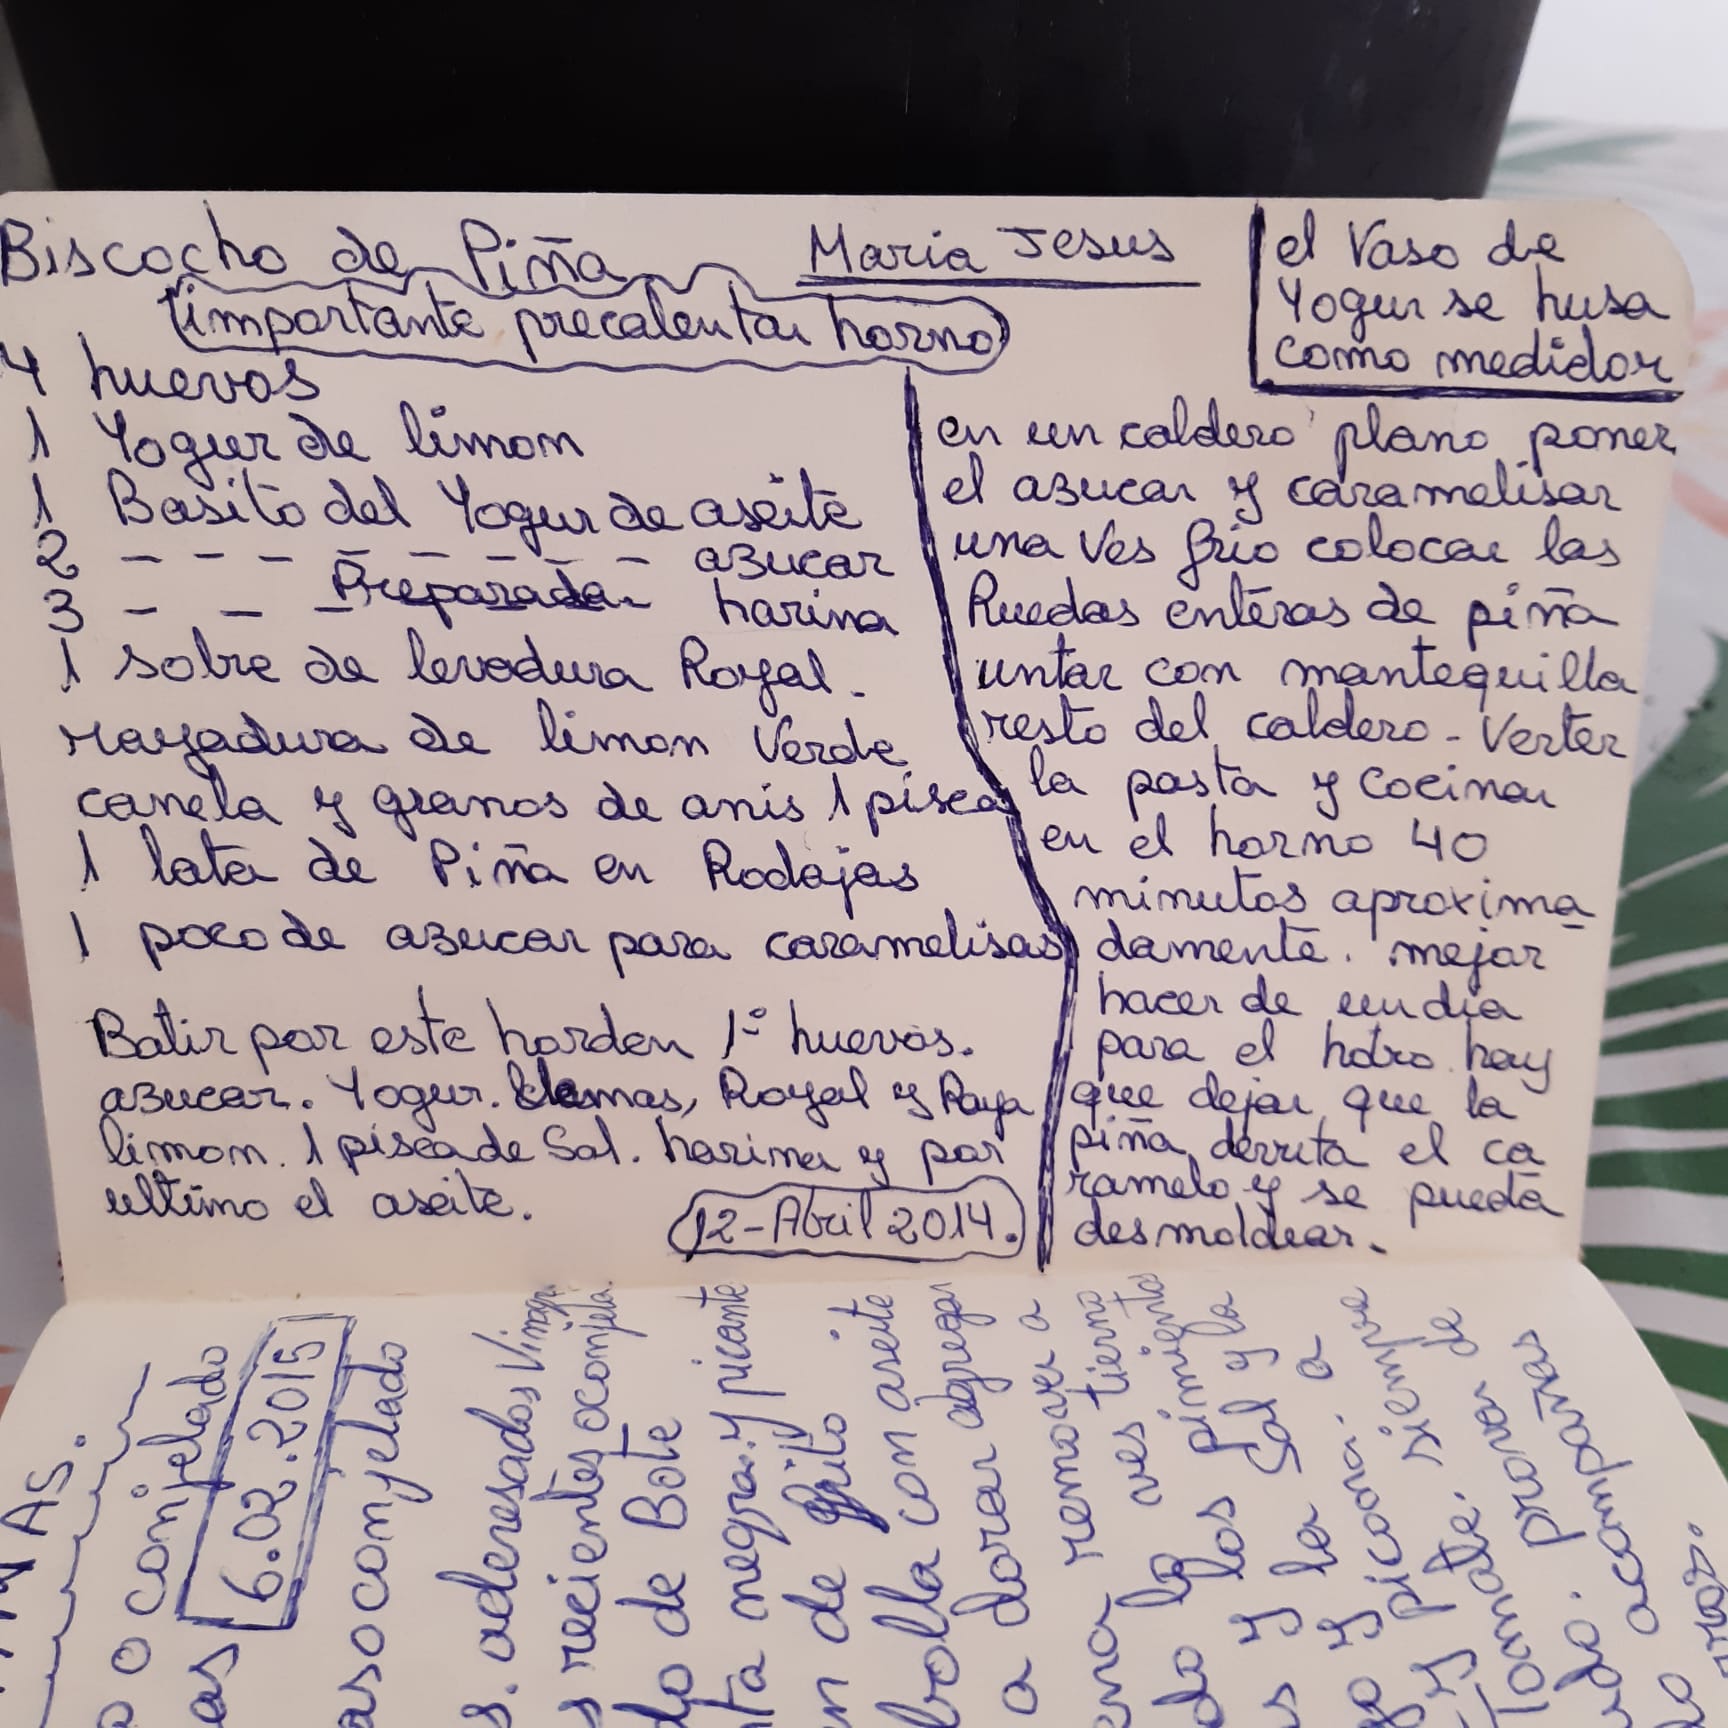 Biscocho de Piña
Maria Jesus
importante precalentar horno
el Vaso de
Yogur se husa
como medidor
4 huevos
1 Yogur de limon
1 Basito del Yogur de aseite
2 - - - - - - - - azucar
3 - - - Preparada - harina
1 sobre de levadura Royal.
rayadura de limon Verde
canela y granos de anis 1 pisca
1 lata de Piña en Rodajas
1 poco de azucar para caramelisar
Batir por este horden 1º huevos.
azucar. Yogur. Royal y Raya
limon. 1 pisca de Sal. harina y por
ultimo el aseite.
12-Abril 2014.
en un caldero plano poner
el azucar y caramelisar
una Ves frio colocar las
Ruedas enteras de piña
untar con mantequilla
resto del caldero - Verter
la pasta y cocinar
en el horno 40
minutos aproxima
damente. mejor
hacer de un dia
para el hotro hay
que dejar que la
piña derrita el ca
ramelo y se pueda
desmoldear.
AS.
o conjelado
6.02.2015
as o conjelado
s. aderesados
s recientes o conjela
do de Bote
nta negra. y picante
n de frito
bolla con aseite
a dorar agregar
remover a
do la ves tierna
los pimientos
s y la Sal y la
go y picona. a
y picona. siempre
Tomate.
do. probar de
do acompañas